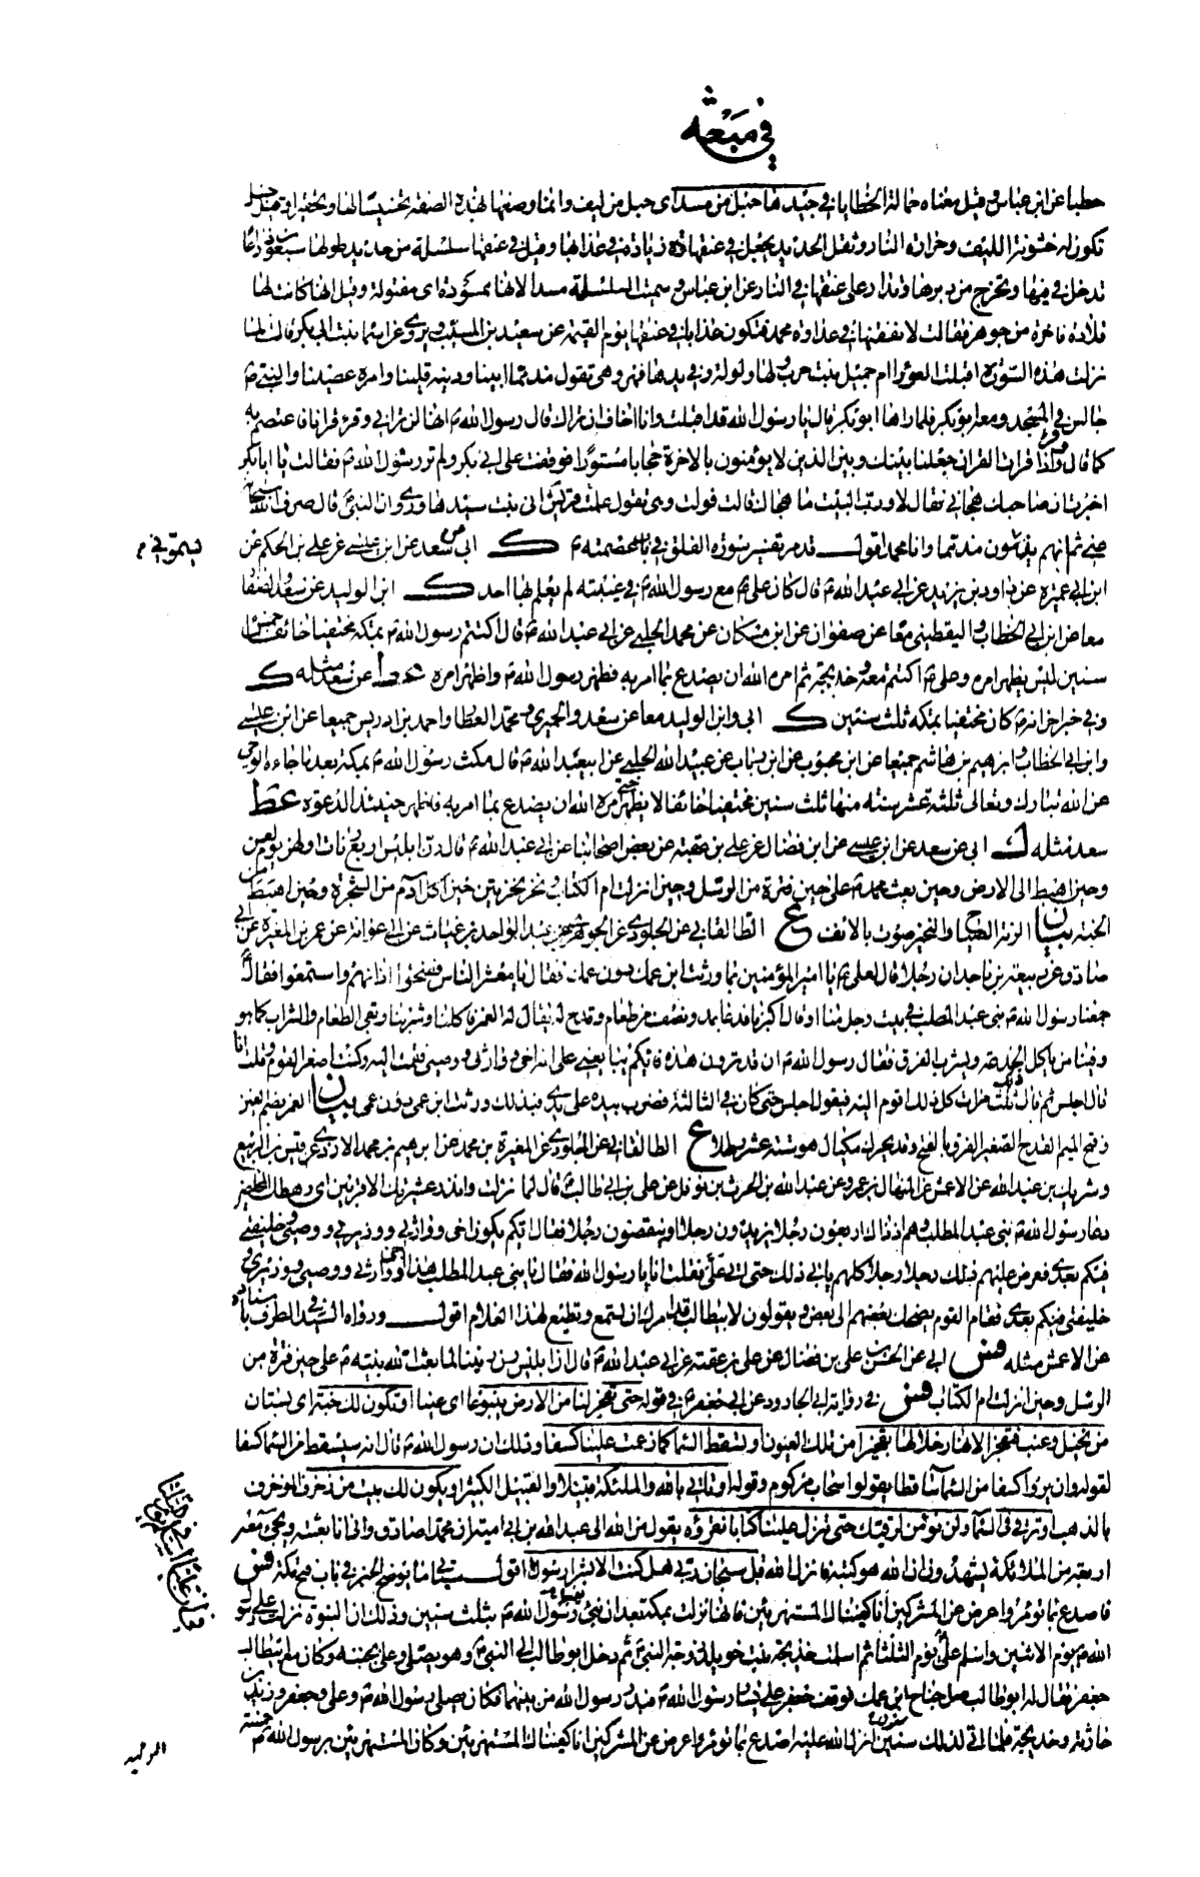 في مبعثه
حطبا عن ابن عباس وقيل معناه حمالة الخطايا في جيدها حبل من مسد اى حبل من ليف وانما وصفها بهذه الصفة تخسيسا لها وتحقيرا وقيل حبل
تكون له خشونة الليف وحرارة النار وثقل الحديد يجعل في عنقها زيادة في عذابها وقيل في عنقها سلسلة من حديد طولها سبعون ذراعا
تدخل في فيها وتخرج من دبرها وتدار على عنقها في النار عن ابن عباس وسميت السلسلة مسدا لانها ممسودة اى مفتولة وقيل انها كانت لها
قلادة فاخرة من جوهر فقالت لانفقنها في عداوة محمد فتكون عذابا في عنقها يوم القيمة عن سعيد بن المسيب ويروى عن اسماء بنت ابي بكر قالت لما
نزلت هذه السورة اقبلت العوراء ام جميل بنت حرب ولها ولولة وفي يدها فهر وهي تقول مذمما ابينا ودينه قلينا وامره عصينا والنبي ص
جالس في المسجد ومعه ابو بكر فلما راها ابو بكر قال يا رسول الله قد اقبلت وانا اخاف ان تراك قال رسول الله ص انها لن تراني وقرء قرانا فاعتصم به
كما قال واذا قرات القران جعلنا بينك وبين الذين لا يؤمنون بالاخرة حجابا مستورا فوقفت على ابي بكر ولم تر رسول الله ص فقالت يا ابا بكر
اخبرت ان صاحبك هجاني فقال لا ورب البيت ما هجاك قالت فولت وهي تقول علمت قريش اني بنت سيدها وروى ان النبي ص قال صرف الله سبحانه
عني ثم انهم يذمون مذمما وانا محمد اقول قد مر تفسير سورة الفلق في باب عصمته ص ك ابي عن سعد عن ابن عيسى عن علي بن الحكم عن
ابن ابي عميرة عن داود بن يزيد عن ابي عبد الله ع قال كان علي ع مع رسول الله ص في غيبته لم يعلم بها احد ك ابن الوليد عن سعد والصفار
معا عن ابن ابي الخطاب واليقطيني معا عن صفوان عن ابن مسكان عن محمد الحلبي عن ابي عبد الله ع قال اكتتم رسول الله ص بمكة مختفيا خائفا خمس
سنين ليس يظهر امره وعلي ع اكتتم معه وخديجة ثم امره الله ان يصدع بما امر به فظهر رسول الله ص واظهر امره عن سعد مثله ك
وفي خبر اخر انه ص كان مختفيا بمكة ثلث سنين ك ابي وابن الوليد معا عن سعد والحميري ومحمد العطار واحمد بن ادريس جميعا عن ابن عيسى
وابن ابي الخطاب وابرهيم بن هاشم جميعا عن ابن محبوب عن ابن رئاب عن عبيد الله الحلبي عن ابي عبد الله ع قال مكث رسول الله ص بمكة بعد ما جاءه الوحي
عن الله تبارك وتعالى ثلثة عشر سنة منها ثلث سنين مختفيا خائفا لا يظهر حتى امره الله ان يصدع بما امر به فاظهر حينئذ الدعوة غط
سعد مثله ل ابي عن سعد عن ابن عيسى عن ابن فضال عن علي بن عقبة عن بعض اصحابنا عن ابي عبد الله ع قال رن ابليس اربع رنات اولهن يوم لعن
وحين اهبط الى الارض وحين بعث محمد ص على حين فترة من الرسل وحين انزلت ام الكتاب ونخر نخرتين حين اكل آدم من الشجرة وحين اهبط من
الجنة بيان الرنة الصياح والنخير صوت بالانف ع الطالقاني عن الجلودي عن الجوهري عن عبد الواحد بن غياث عن ابي عوانة عن عمر بن المغيرة عن ابي
صادق عن ربيعة بن ناجد ان رجلا قال لعلي ع يا امير المؤمنين بما ورثت ابن عمك دون عمك فقال يا معشر الناس ففتحوا اذانهم واستمعوا فقال ع
جمعنا رسول الله ص بني عبد المطلب في بيت رجل منا او قال اكبرنا فدعا بمد ونصف من طعام وقدح له يقال له الغمر فاكلنا وشربنا وبقي الطعام والشراب كما هو
وفينا من ياكل الجذعة ويشرب الفرق فقال رسول الله ص ان قد ترون هذه فايكم يبايعني على انه اخي ووارثي ووصيي فقمت اليه وكنت اصغر القوم وقلت انا
قال اجلس ثم قال ذلك ثلث مرات كل ذلك اقوم اليه فيقول اجلس حتى كان في الثالثة فضرب بيده على يدي فبذلك ورثت ابن عمي دون عمي بيان الغمر بضم الغين
وفتح الميم القدح الصغير الفرق بالفتح وقد يحرك مكيال هو ستة عشر رطلا ع الطالقاني عن الجلودي عن المغيرة بن محمد عن ابرهيم بن محمد الازدي عن قيس بن الربيع
وشريك بن عبد الله عن الاعمش عن المنهال بن عمرو عن عبد الله بن الحرث بن نوفل عن علي بن ابي طالب ع قال لما نزلت وانذر عشيرتك الاقربين اى رهطك المخلصين
دعا رسول الله ص بني عبد المطلب وهم اذ ذاك اربعون رجلا يزيدون رجلا او ينقصون رجلا فقال ايكم يكون اخي ووارثي ووزيري ووصيي وخليفتي
فيكم بعدي فعرض عليهم ذلك رجلا رجلا كلهم يابى ذلك حتى اتى علي فقلت انا يا رسول الله فقال يا بني عبد المطلب هذا اخي ووارثي ووصيي ووزيري و
خليفتي فيكم بعدي فقام القوم يضحك بعضهم الى بعض ويقولون لابي طالب قد امرك ان تسمع وتطيع لهذا الغلام اقول ورواه السيد في الطرف باسناده
عن الاعمش مثله فس ابي عن الحسن بن علي بن فضال عن علي بن عقبة عن ابي عبد الله ع قال ان ابليس رن رنينا لما بعث الله نبيه ص على حين فترة من
الرسل وحين انزلت ام الكتاب فس في رواية ابي الجارود عن ابي جعفر ع في قوله حتى تفجر لنا من الارض ينبوعا اى عينا او تكون لك جنة اى بستان
من نخيل وعنب فتفجر الانهار خلالها تفجيرا من تلك العيون او تسقط السماء كما زعمت علينا كسفا وذلك ان رسول الله ص قال انه سيسقط من السماء كسفا
لقوله وان يروا كسفا من السماء ساقطا يقولوا سحاب مركوم وقوله او تاتي بالله والملئكة قبيلا والقبيل الكثير او يكون لك بيت من زخرف المزخرف
بالذهب او ترقى في السماء ولن نؤمن لرقيك حتى تنزل علينا كتابا نقرؤه يقول من الله الى عبد الله بن ابي امية ان محمدا صادق واني انا بعثته ويجيء معه
اربعة من الملائكة يشهدون ان الله هو كتبه فانزل الله قل سبحان ربي هل كنت الا بشرا رسولا اقول سياتي ما يوضح الخبر في باب فتح مكة فس
فاصدع بما تؤمر واعرض عن المشركين انا كفيناك المستهزئين فانها نزلت بمكة بعد ان نبئ رسول الله ص بثلث سنين وذلك ان النبوة نزلت على رسول
الله ص يوم الاثنين واسلم علي ع يوم الثلثا ثم اسلمت خديجة بنت خويلد زوجة النبي ص ثم دخل ابو طالب الى النبي ص وهو يصلي وعلي بجنبه وكان مع ابي طالب
جعفر فقال له ابو طالب صل جناح ابن عمك فوقف جعفر على يسار رسول الله ص فبدر رسول الله من بينهما فكان يصلي رسول الله ص وعلي وجعفر وزيد بن
حارثة وخديجة فلما اتى لذلك سنين انزل الله عليه اصدع بما تؤمر واعرض عن المشركين انا كفيناك المستهزئين وكان المستهزئين برسول الله ص خمسة